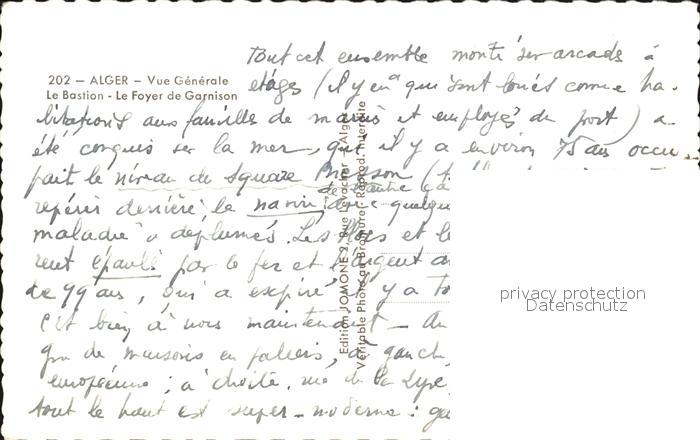 202 — ALGER — Vue Générale
Le Bastion - Le Foyer de Garnison
Tout cet ensemble monté sur arcades à
étages (il y en a qui sont loués comme ha-
bitations aux familles de marins et employés du port) a
été conquis sur la mer, qui il y a environ 75 ans occu-
pait le niveau du Square Bresson
repérer derrière le navire donc quelqu
maladie a déplumés. Les flots et le
rent épaulé par le fer et l'argent a
de 99 ans, qui a expiré il y a
est bien à nous maintenant — Au
de maisons en paliers, à gauch
européenne ; à droite, rue de la Lyre
tout le haut est super-moderne : ga
Edition JOMONE 2, rue Levacher - Alger
Véritable Photo au Bromure. Reprod. Interdite
privacy protection
Datenschutz